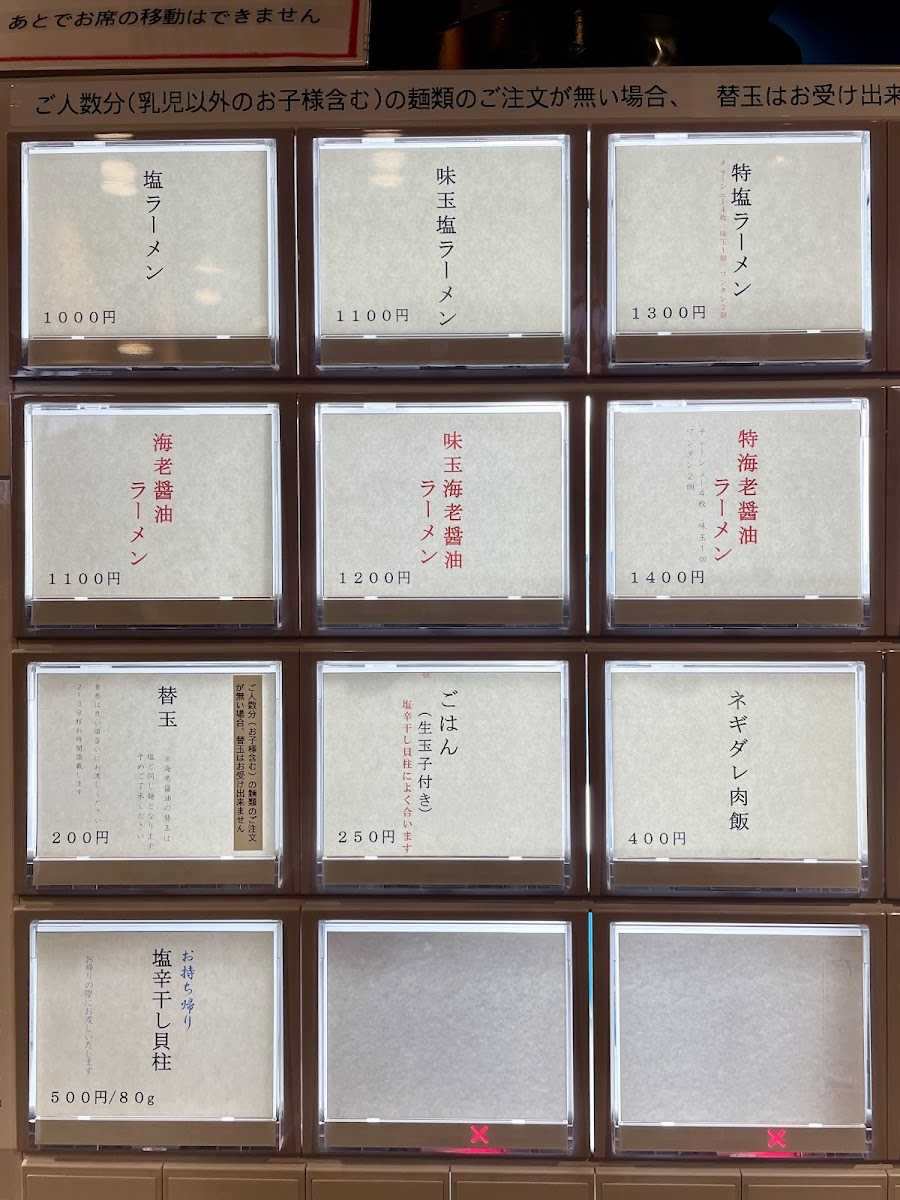 あとでお席の移動はできません
ご人数分（乳児以外のお子様含む）の麺類のご注文が無い場合、　替玉はお受け出来
塩ラーメン
1000円
味玉塩ラーメン
1100円
特塩ラーメン
チャーシュー4枚　味玉1個　ワンタン2個
1300円
海老醤油
ラーメン
1100円
味玉海老醤油
ラーメン
1200円
特海老醤油
ラーメン
チャーシュー4枚　味玉1個
ワンタン2個
1400円
ご人数分（お子様含む）の麺類のご注文
が無い場合、替玉はお受け出来ません
替玉
※海老醤油の替玉は
塩と同じ麺となります
予めご了承ください
食券は良い頃合いにお渡しください
2～3分程お時間頂戴します
200円
ごはん
（生玉子付き）
塩辛干し貝柱によく合います
250円
ネギダレ肉飯
400円
お持ち帰り
塩辛干し貝柱
お帰りの際にお渡しいたします
500円/80g